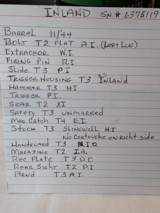 INLAND SN# 6375119
Barrel 11/44
Bolt T2 Flat A.I. (Left Lug)
Extractor W.I
Firing Pin R.I
Slide T3 P.I
Trigger Housing T3 Inland
Hammer T3 HI
Trigger P.I.
Sear T2 XI
Safety T3 unmarked
Mag Catch T4 E.I
Stock T3 Slingwell HI
No Cartouche on right side
Handguard T3
Magazine T2 I.A.
Rec. Plate T3 D.I.
Rear Sight T2 P.I
Band T3 A.I